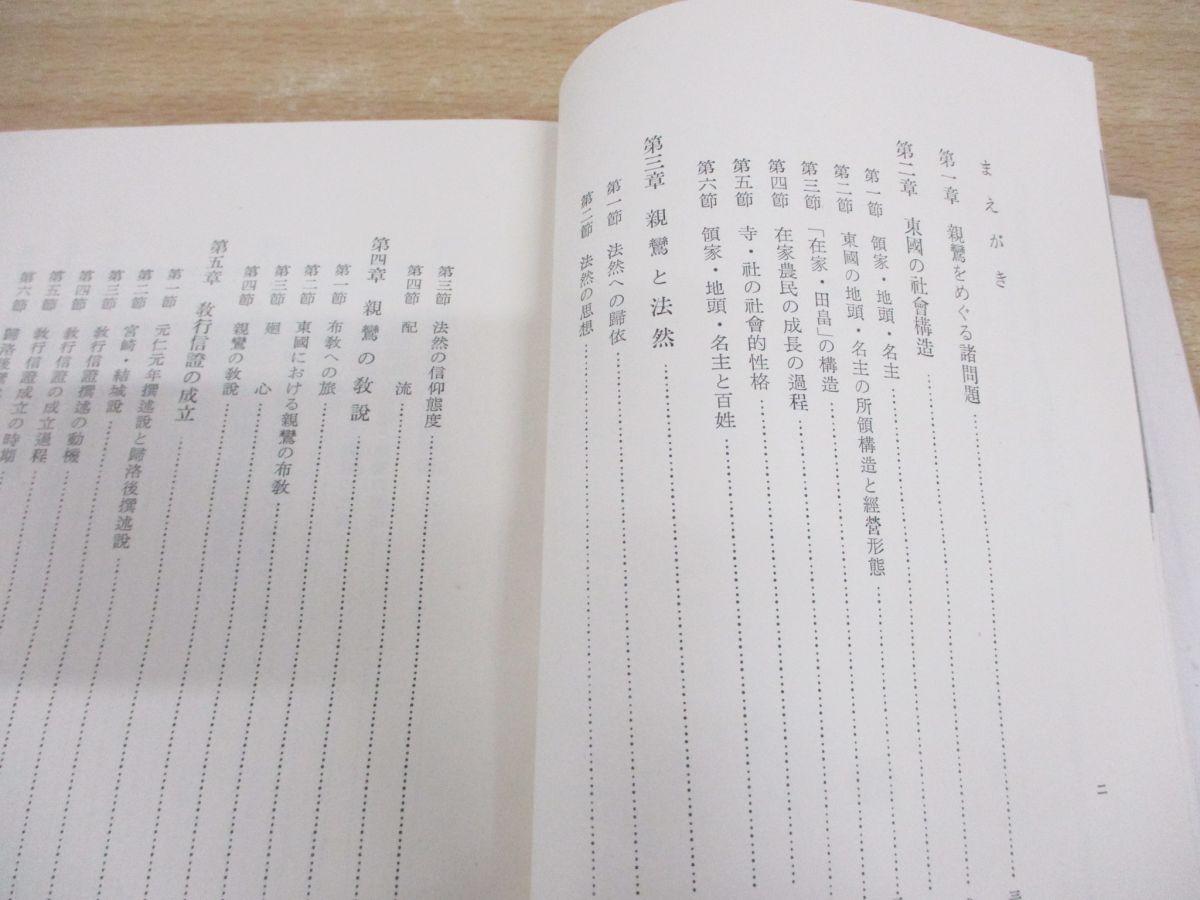 まえがき
第一章 親鸞をめぐる諸問題
第二章 東國の社會構造
第一節 領家・地頭・名主
第二節 東國の地頭・名主の所領構造と經營形態
第三節 「在家・田畠」の構造
第四節 在家農民の成長の過程
第五節 寺・社の社會的性格
第六節 領家・地頭・名主と百姓
第三章 親鸞と法然
第一節 法然への歸依
第二節 法然の思想
二
第三節 法然の信仰態度
第四節 配流
第四章 親鸞の教説
第一節 布教への旅
第二節 東國における親鸞の布教
第三節 廻心
第四節 親鸞の教説
第五章 教行信證の成立
第一節 元仁元年撰述説と歸洛後撰述説
第二節 宮崎・結城説
第三節 教行信證撰述の動機
第四節 教行信證の成立
第五節 教行信證成立過程
第六節 歸洛後